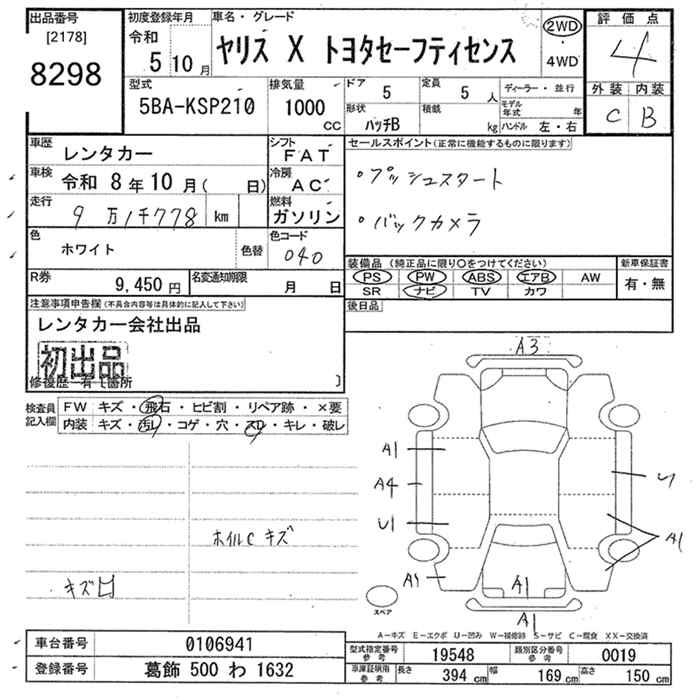 出品番号
[2178]
8298
初度登録年月
令和
5 10 月
車名・グレード
ヤリス X トヨタセーフティセンス
2WD
・
4WD
評価点
4
型式
5BA-KSP210
排気量
1000
CC
ドア
5
定員
5 人
形状
ハッチB
積載
kg
ディーラー・並行
モデル年式 年
ハンドル 左・右
外装 内装
C B
車歴
レンタカー
シフト
FAT
車検
令和 8年10月( 日)
冷房
AC
走行
9 万1千778 km
燃料
ガソリン
色
ホワイト
色替
色コード
040
R券
9,450 円
名変通知期限
月 日
セールスポイント(正常に機能するものに限ります)
・プッシュスタート
・バックカメラ
装備品 (純正品に限り〇をつけてください)
PS PW ABS エアB AW
SR ナビ TV カワ
新車保証書
有・無
後日品
注意事項申告欄(不具合内容等は具体的に記入して下さい)
レンタカー会社出品
初出品
修復歴 有 箇所
検査員
記入欄
FW キズ・飛石・ヒビ割・リペア跡・×要
内装 キズ・汚レ・コゲ・穴・スレ・キレ・破レ
ホイルC キズ
キズ
A3
A1
A4
U1
A1
A1
A1
A1
スペア
A-キズ E-エクボ U-凹み W-補修跡 S-サビ C-腐食 XX-交換済
車台番号
0106941
登録番号
葛飾 500 わ 1632
型式指定番号
参考
19548
類別区分番号
参考
0019
車庫証明用
参考
長さ
394 cm
幅
169 cm
高さ
150 cm